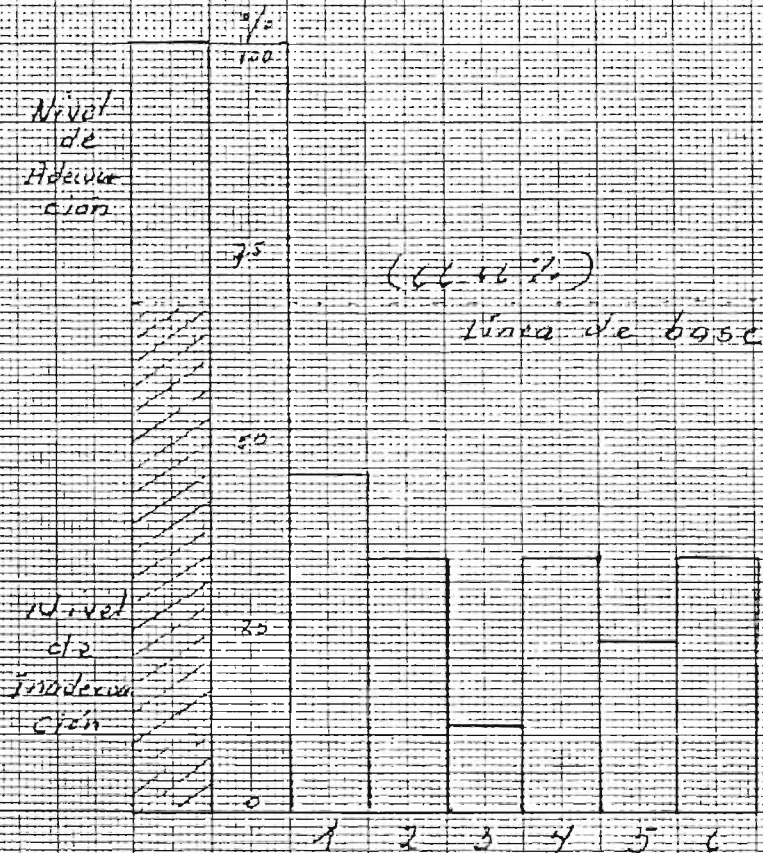 %
100
Nivel
de
Adecua
ción
75
(66.66%)
Línea de base
50
Nivel
de
Inadecua
ción
25
0
1 2 3 4 5 6